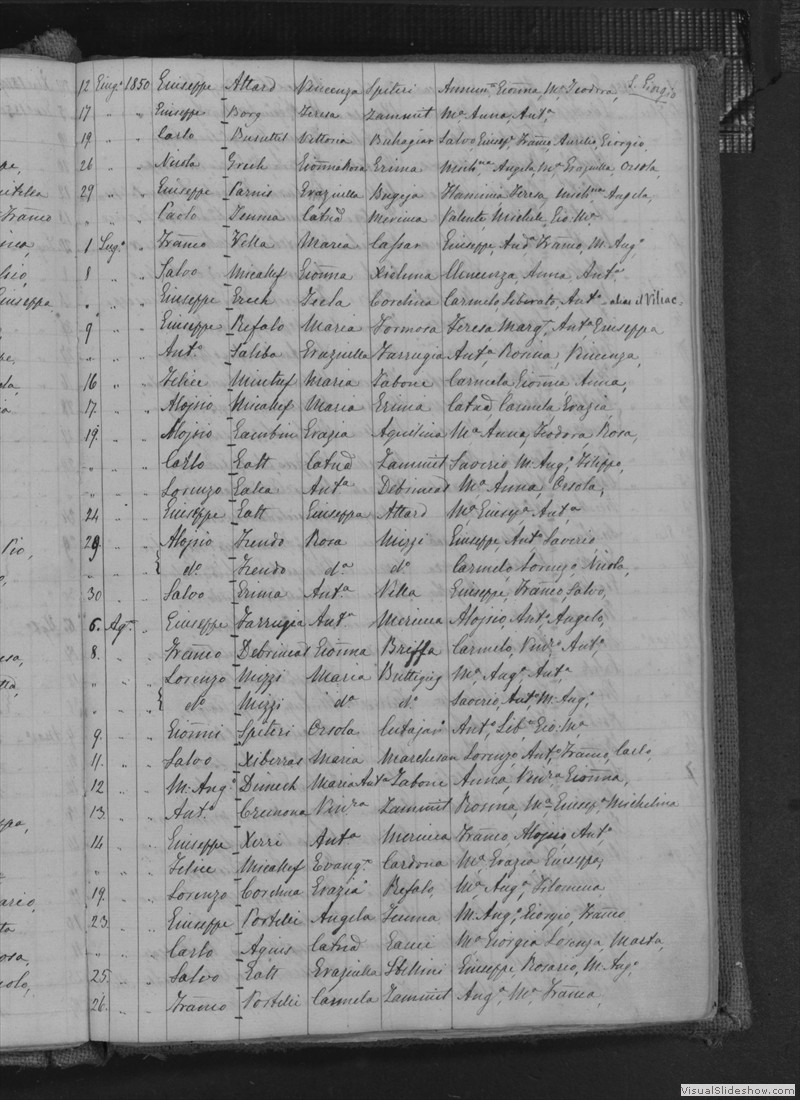 12 Giug.o 1850 Giuseppe Attard Vincenza Spiteri Annun.a Gio͞nna, M.a Teodora, S. Giorgio
17 " " Giuseppe Borg Teresa Zammit M.a Anna, Ant.a
19 " " Carlo Busuttil Vittoria Buhagiar Salvo Giusep.e Fra͞nco Aurelia, Giorgio,
26 " " Nicola Grech Gio͞nna Rosa Grima Angela, M.a Graziulla, Orsola,
29 " " Giuseppe Parnis Graziulla Bugeja Teresa, Angela,
" " Paolo Tonna Cat.na Mercieca Valente, Michele, Gio. M.a
1 Lug.o " Fra͞nco Vella Maria Cassar Giuseppe, And.a Fra͞nco, M. Ang.o
8 " " Salvo Micallef Gio͞nna Xicluna Vincenza, Anna, Ant.a
" " " Giuseppe Grech Tecla Corchua Carmelo, Liberato, Ant.o alias il Viliac
9 " " Giuseppe Refalo Maria Formosa Teresa Marg.ta, Ant.a Giuseppa
" " " Ant.o Saliba Graziulla Farrugia Ant.a, Rosina, Vincenza,
16 " " Felice Mintuf Maria Tabone Carmela Gio͞nna Anna,
17 " " Alojsio Micallef Maria Grima Cat.na Carmela, Grazia,
19 " " Alojsio Gambin Grazia Aquilina M.a Anna, Teodora Rosa,
" " " Carlo Gatt Cat.na Zammit Saverio, M. Ang.o, Filippo,
" " Lorenzo Galea Ant.a Debrincat M.a Anna, Orsola,
24 " " Giuseppe Gatt Giuseppa Attard M.a Giusep.a Ant.a
29 " " Alojsio Trendo Rosa Mizzi Giuseppe, Ant.o Saverio
" " { d.o Trendo d.a d.o Carmelo, Lorenzo, Nicola,
30 " " Salvo Grima Ant.a Vella Giuseppe, Fra͞nco, Salvo,
6. Ag.to " Giuseppe Farrugia Ant.a Mercieca Alojsio, Ant.o Angelo,
8. " " Fra͞nco Debrincat Gio͞nna Briffa Carmelo, Vinc.o Ant.o,
" " " Lorenzo Mizzi Maria Buttigieg M.a Ang.a, Ant.a
" " { d.o Mizzi d.a d.o Saverio, Ant.o M. Ang.o
9. " " Gio͞nni Spiteri Orsola Cutajar Ant.o, Lib.o Gio. M.a
11. " " Salvo Xiberras Maria Marchesan Lorenzo, Ant.o, Fra͞nco, Carlo,
12 " " M. Ang.o Dimech Maria Ant.a Tabone Anna, Vinc.za Gio͞nna,
13. " " Ant.o Cremona Vinc.za Zammit Rosina, M.a Giusep.a Michelina
14 " " Giuseppe Xerri Ant.a Mercieca Fra͞nco, Alojsio, Ant.o
" " " Felice Micallef Evang.ta Cardona M.a Grazia Giuseppa,
19. " " Lorenzo Corchua Grazia Refalo M.a Ang.a, Filomena
23. " " Giuseppe Portelli Angela Tonna M. Ang.o, Giorgio, Fra͞nco
" " " Carlo Agius Cat.na Gauci M.a Giorgia Lorenza, Marta,
25. " " Salvo Gatt Graziulla Stellini Giuseppe, Rosario, M. Ang.o
26. " " Fra͞nco Portelli Carmela Zammit Ang.a, M.a Fra͞nca,
VisualSlideshow.com